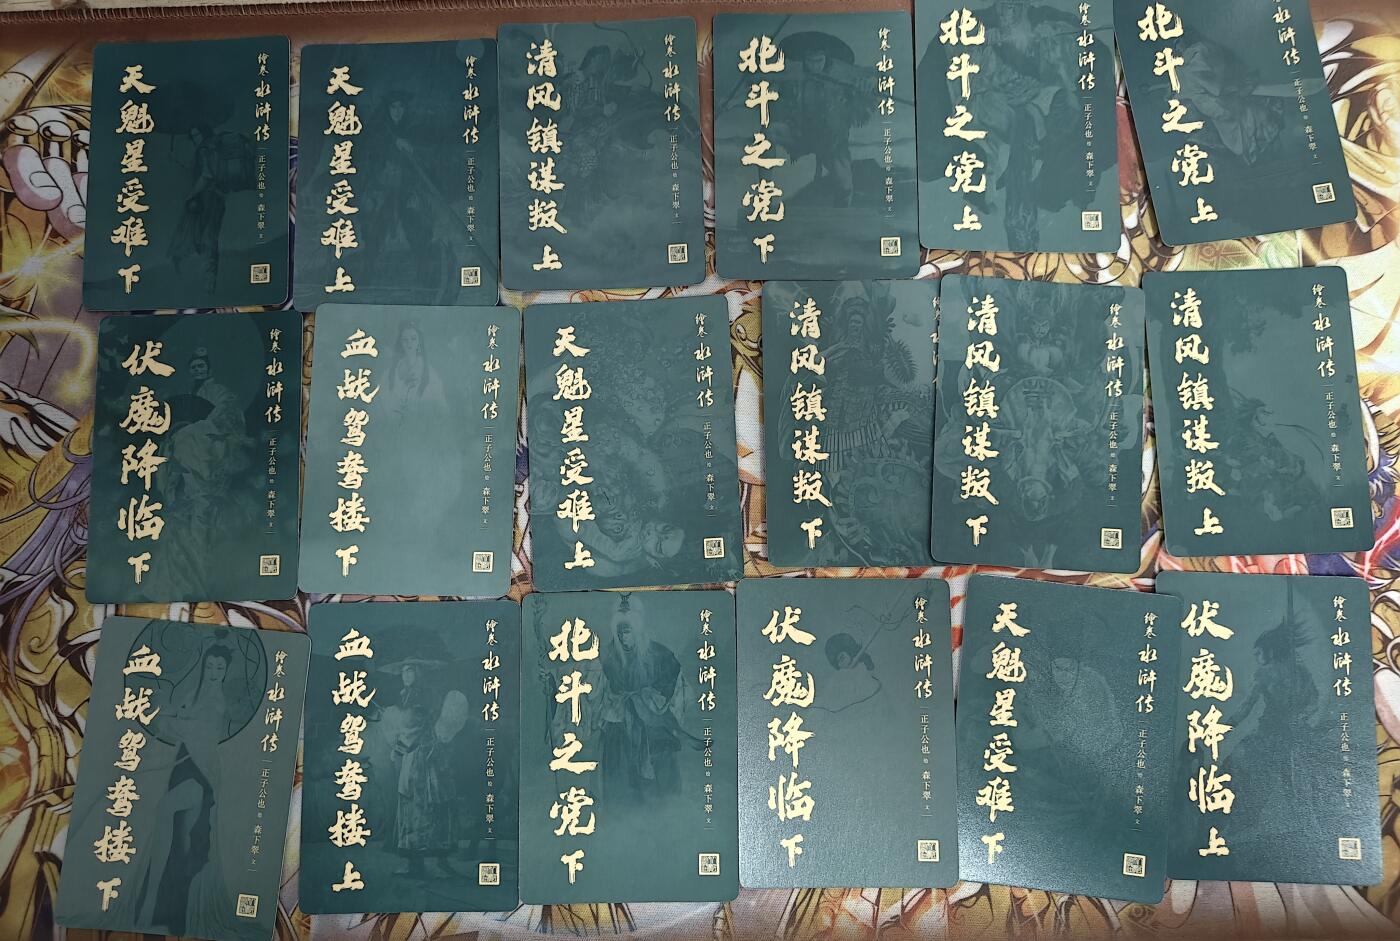 天魁星受难下
繪卷水浒传
正子公也 绘 森下翠 文
天魁星受难上
繪卷水浒传
正子公也 绘 森下翠 文
清风镇谋叛上
繪卷水浒传
正子公也 绘 森下翠 文
北斗之党下
繪卷水浒传
正子公也 绘 森下翠 文
北斗之党上
繪卷水浒传
正子公也 绘 森下翠 文
北斗之党上
繪卷水浒传
正子公也 绘 森下翠 文
伏魔降临下
繪卷水浒传
正子公也 绘 森下翠 文
血战鸳鸯楼下
繪卷水浒传
正子公也 绘 森下翠 文
天魁星受难上
繪卷水浒传
正子公也 绘 森下翠 文
清风镇谋叛下
清风镇谋叛下
繪卷水浒传
正子公也 绘 森下翠 文
清风镇谋叛上
繪卷水浒传
正子公也 绘 森下翠 文
血战鸳鸯楼下
繪卷水浒传
正子公也 绘 森下翠 文
血战鸳鸯楼上
繪卷水浒传
正子公也 绘 森下翠 文
北斗之党下
繪卷水浒传
正子公也 绘 森下翠 文
伏魔降临下
繪卷水浒传
正子公也 绘 森下翠 文
天魁星受难下
繪卷水浒传
正子公也 绘 森下翠 文
伏魔降临上
繪卷水浒传
正子公也 绘 森下翠 文